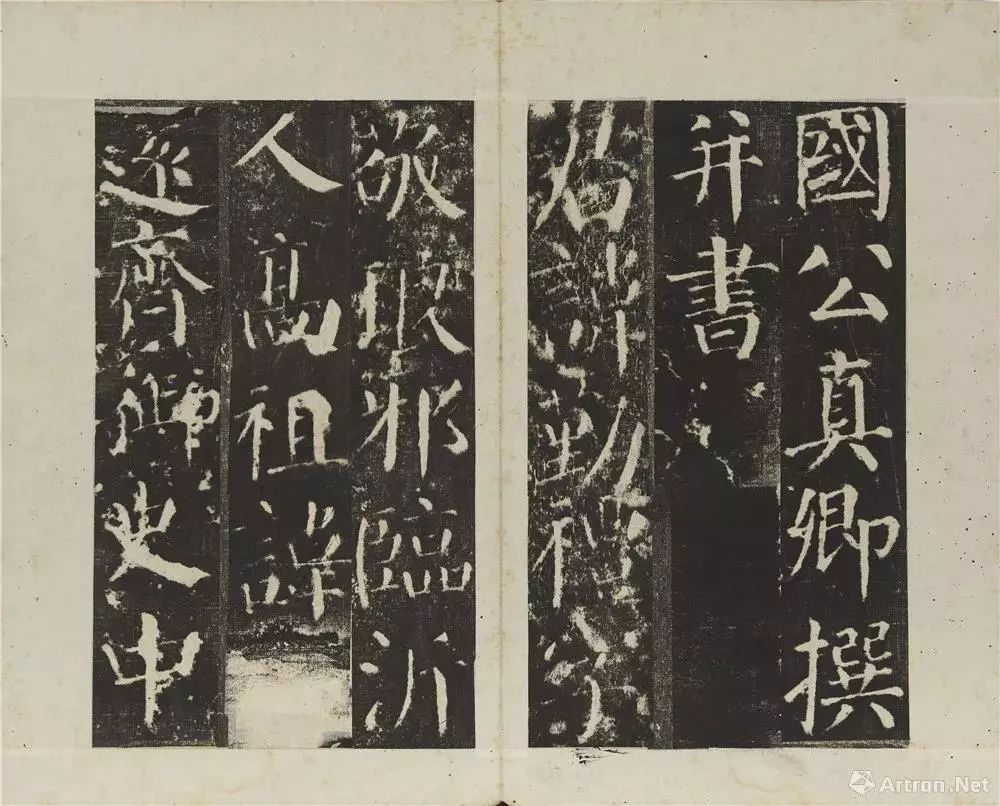 國公真卿撰
并書
君諱勤禮字
敬琅邪臨沂
人高祖諱
逊齊御史中
Artron.Net